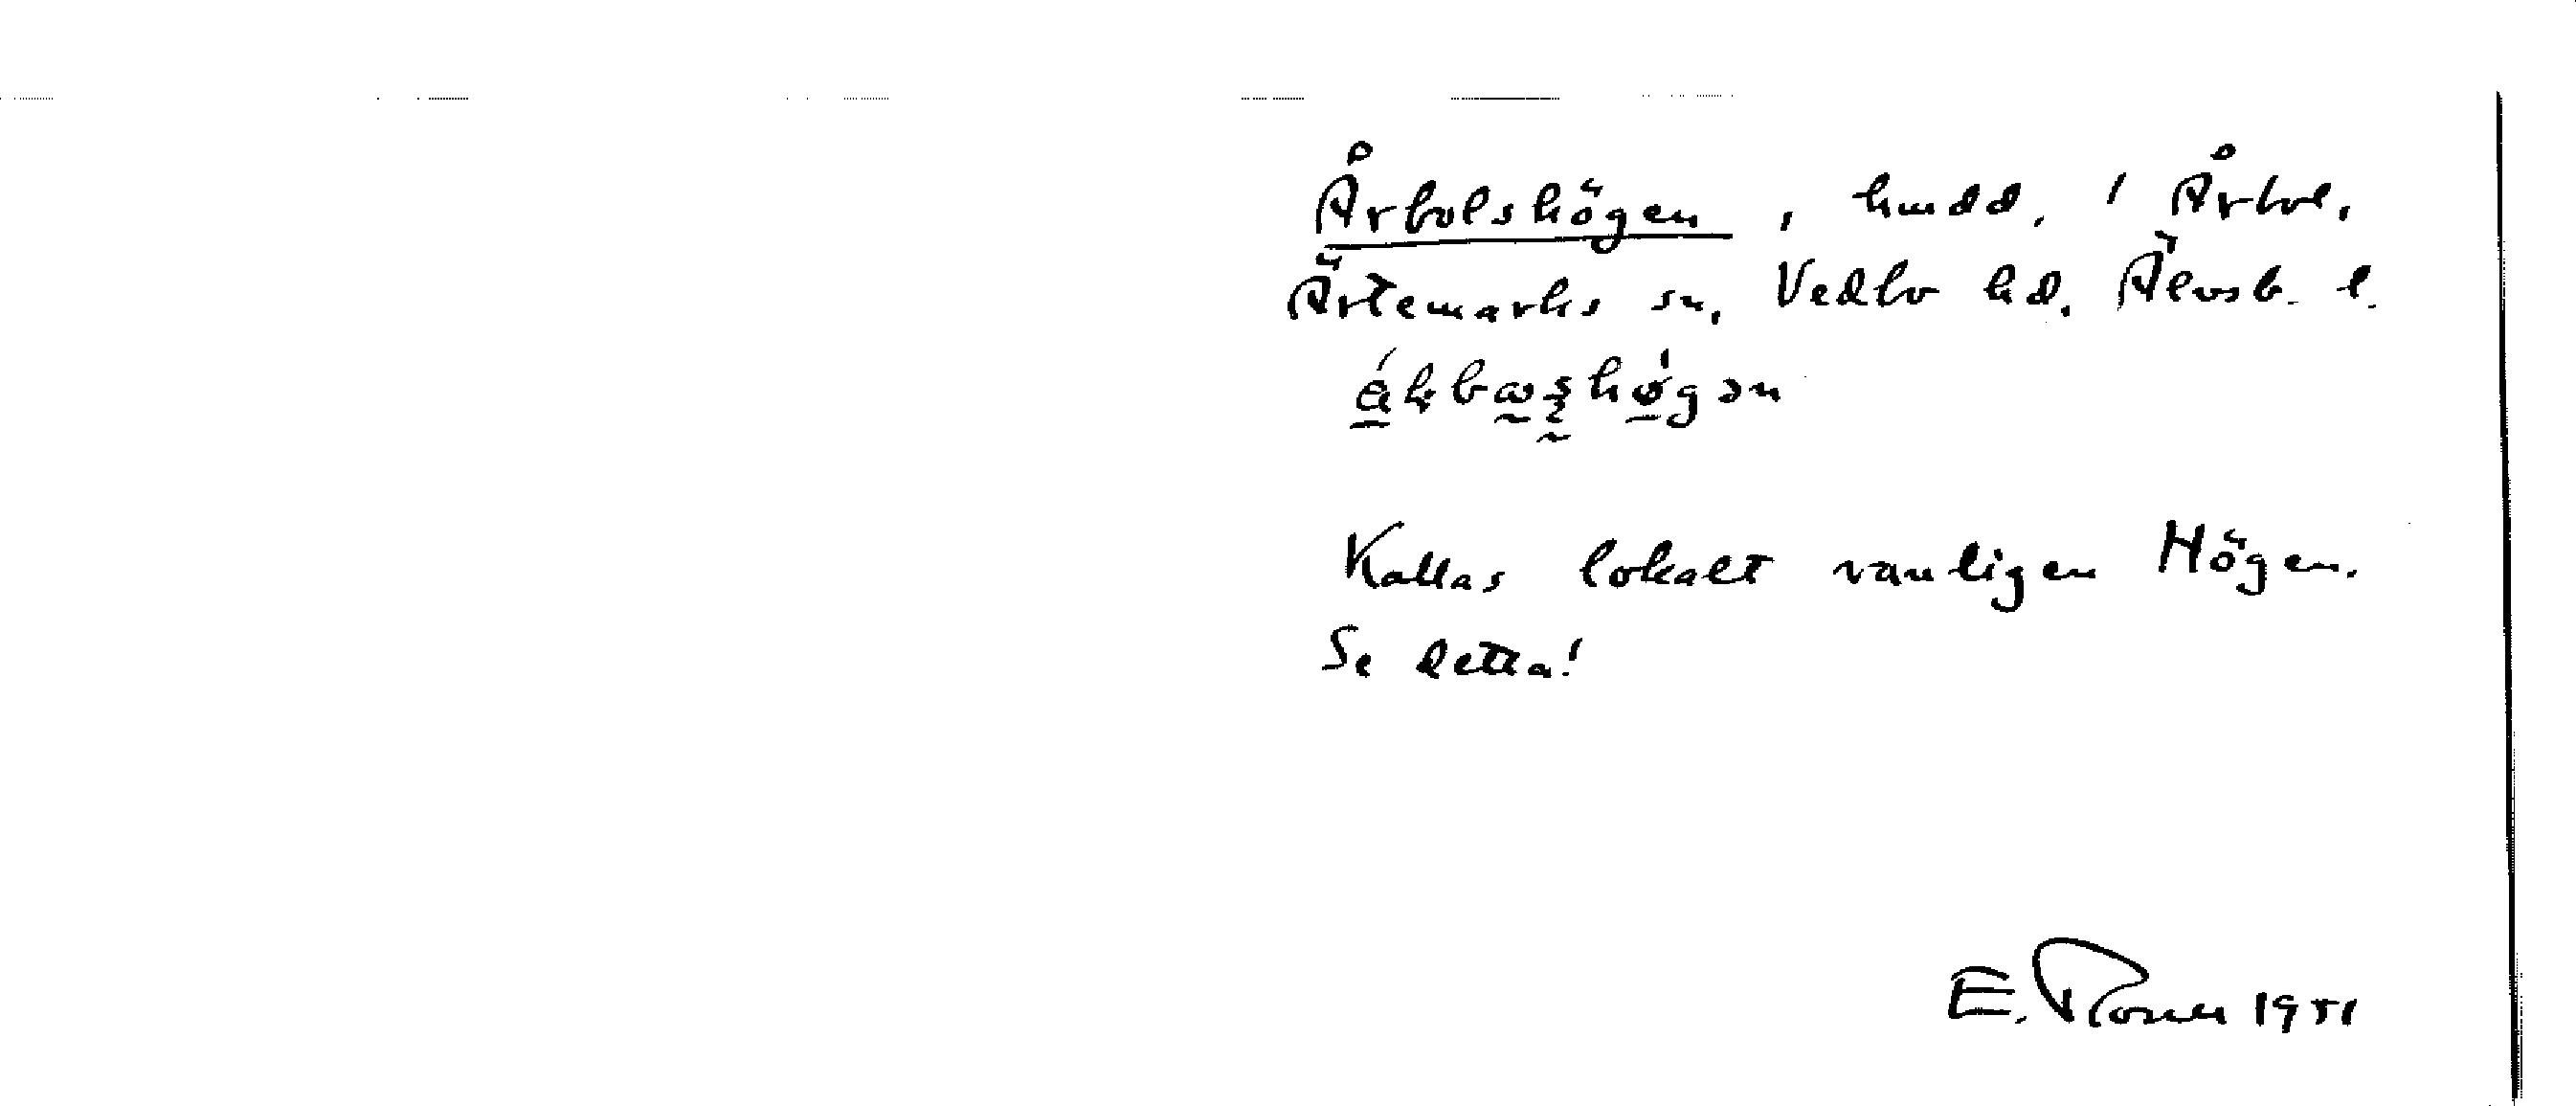 Årbolshögen, hmdd. i Årbol,
Ärtemarks sn, Vedbo hd. Älvsb. l.
Kallas lokalt vanligen Högen.
Se detta!
E. 1951